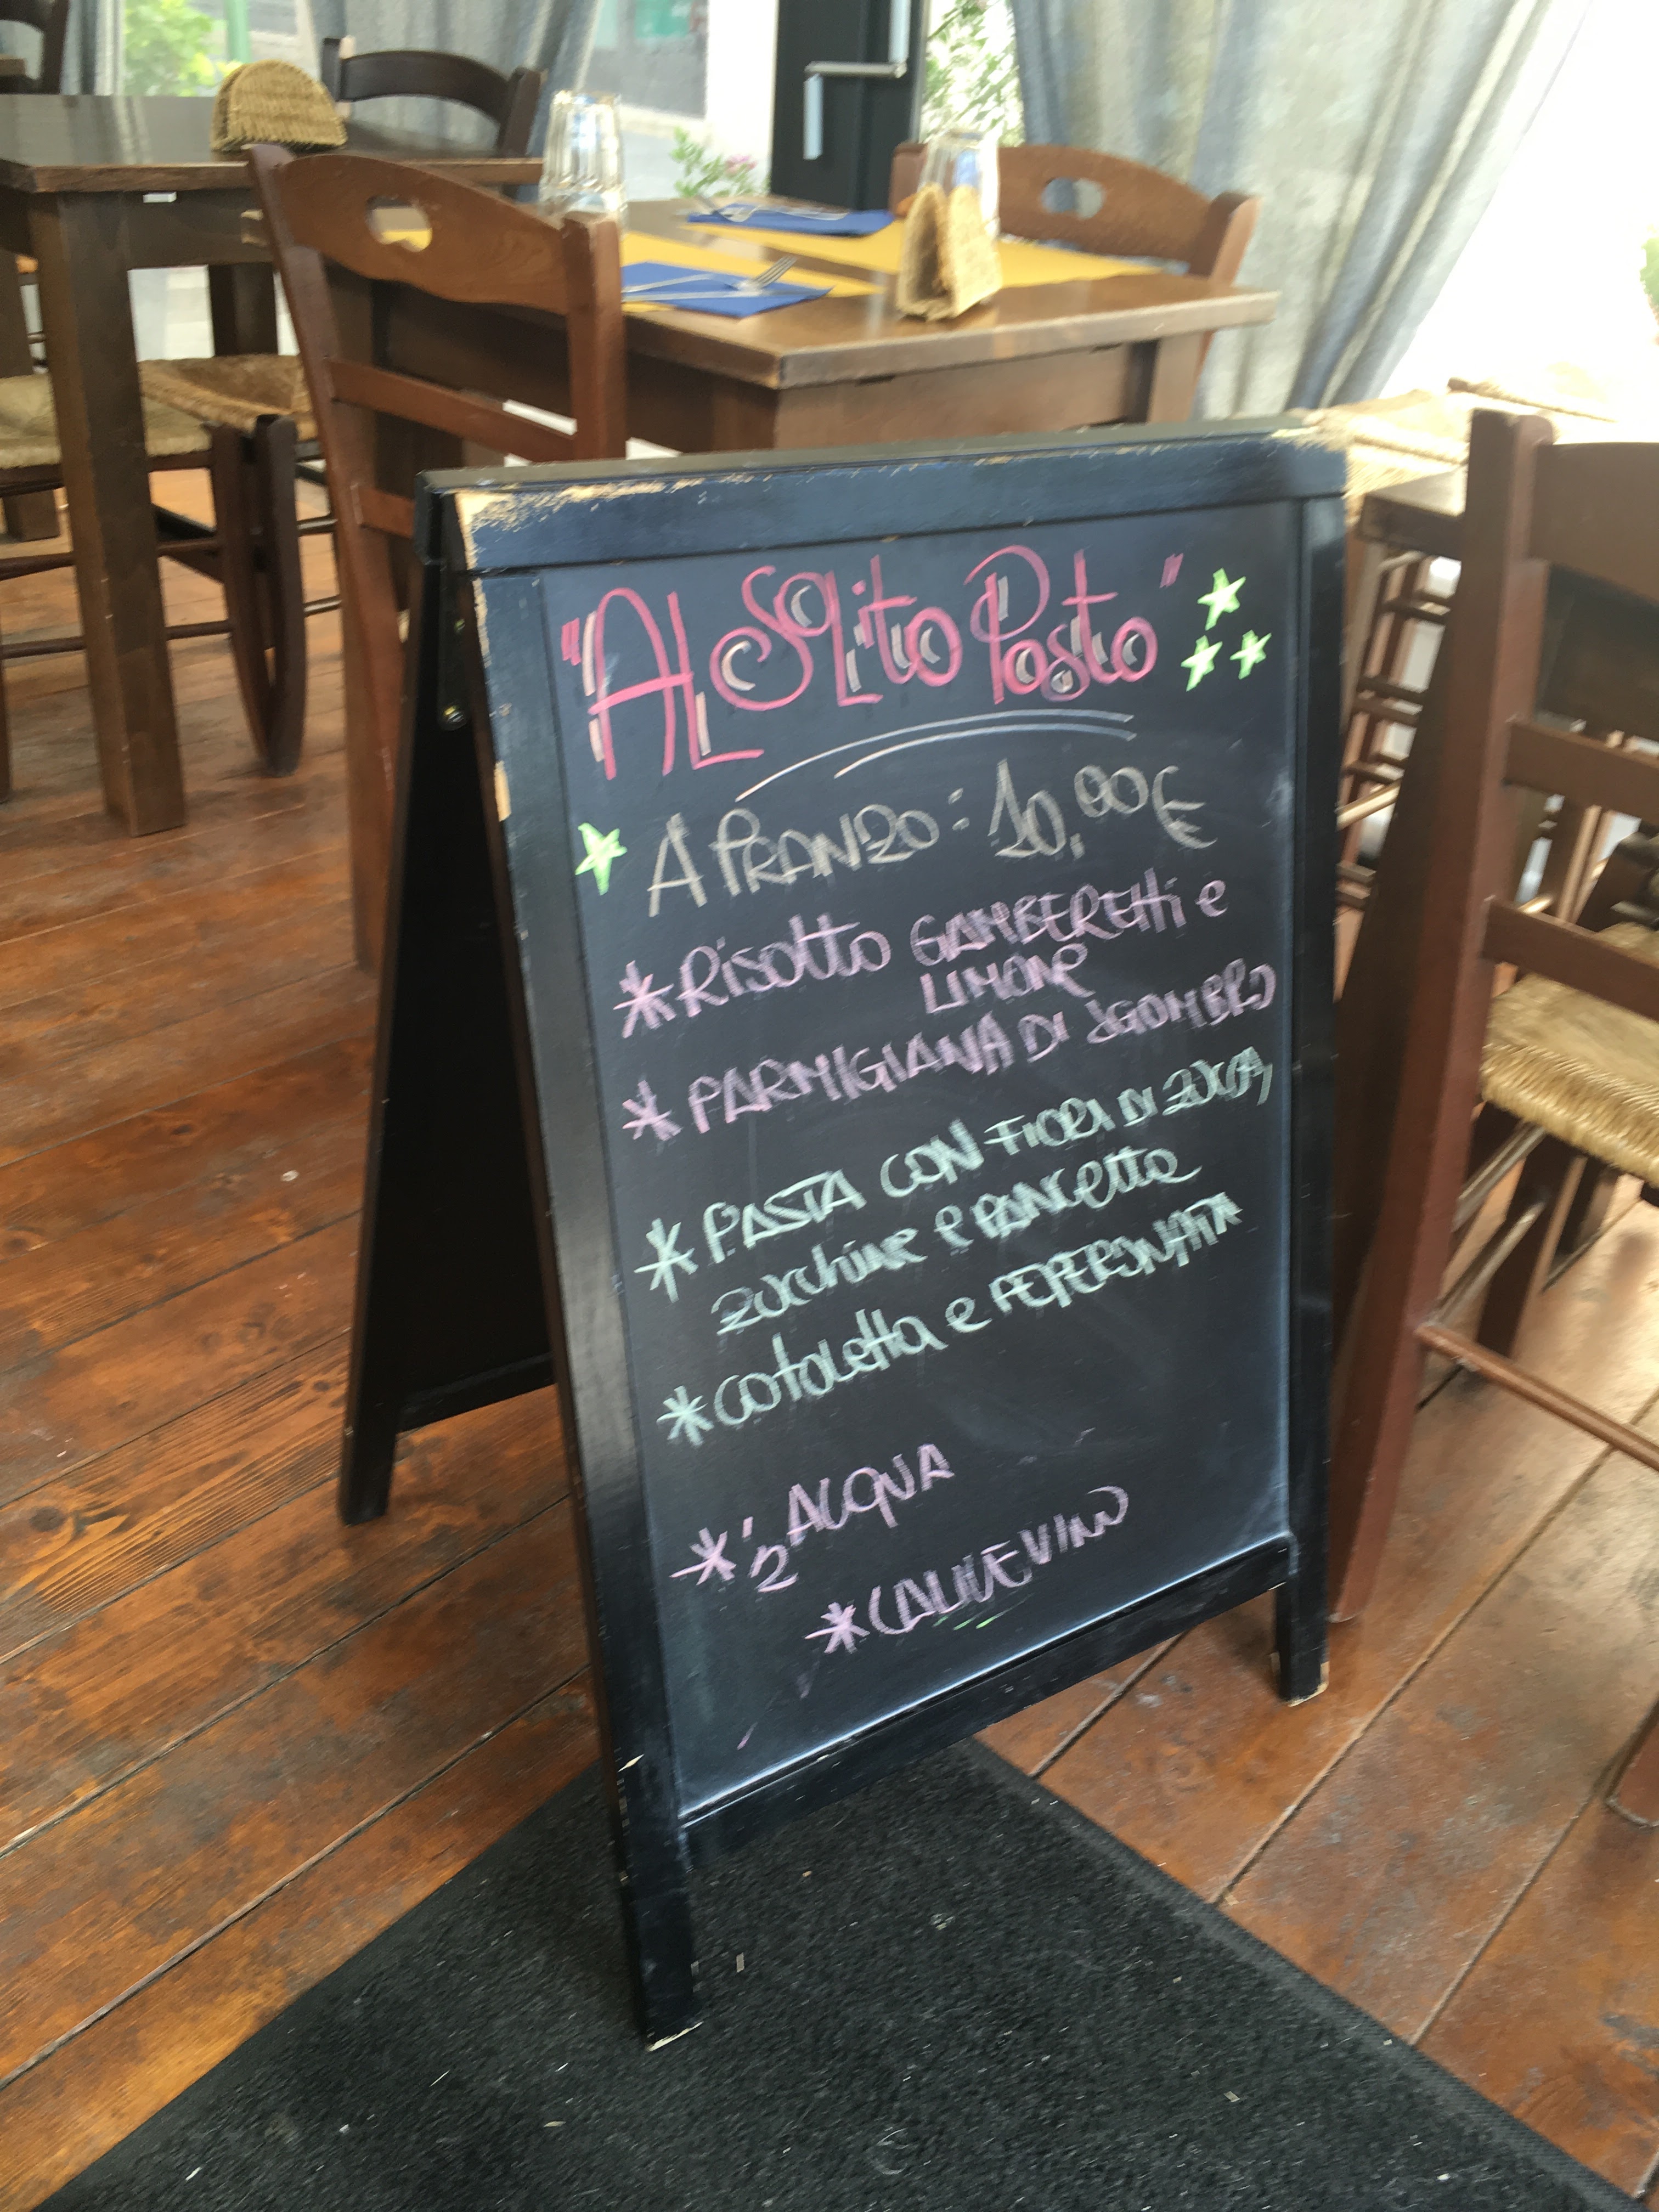 "AL SOLito Posto"
A PRANZO: 10,00€
* Risotto GAMBERETTi e
LIMONE
* PARMIGIANA DI SGOMBRO
* PASTA CON FIORI DI ZUCCA,
zucchine e PANCetta
* cotoletta e PEPERONATA
* 1/2 ACQUA
* CALICE VINO